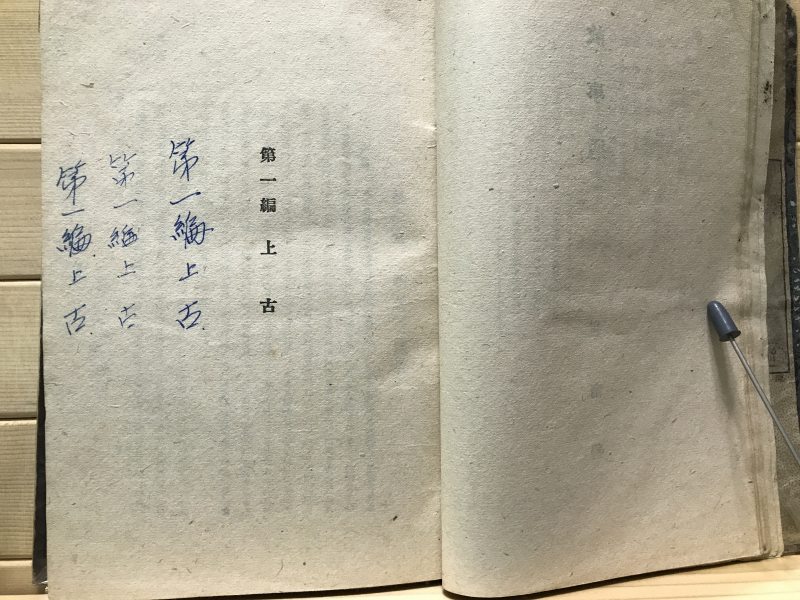 第一編 上古
第一編上古
第一編上古
第一編上古